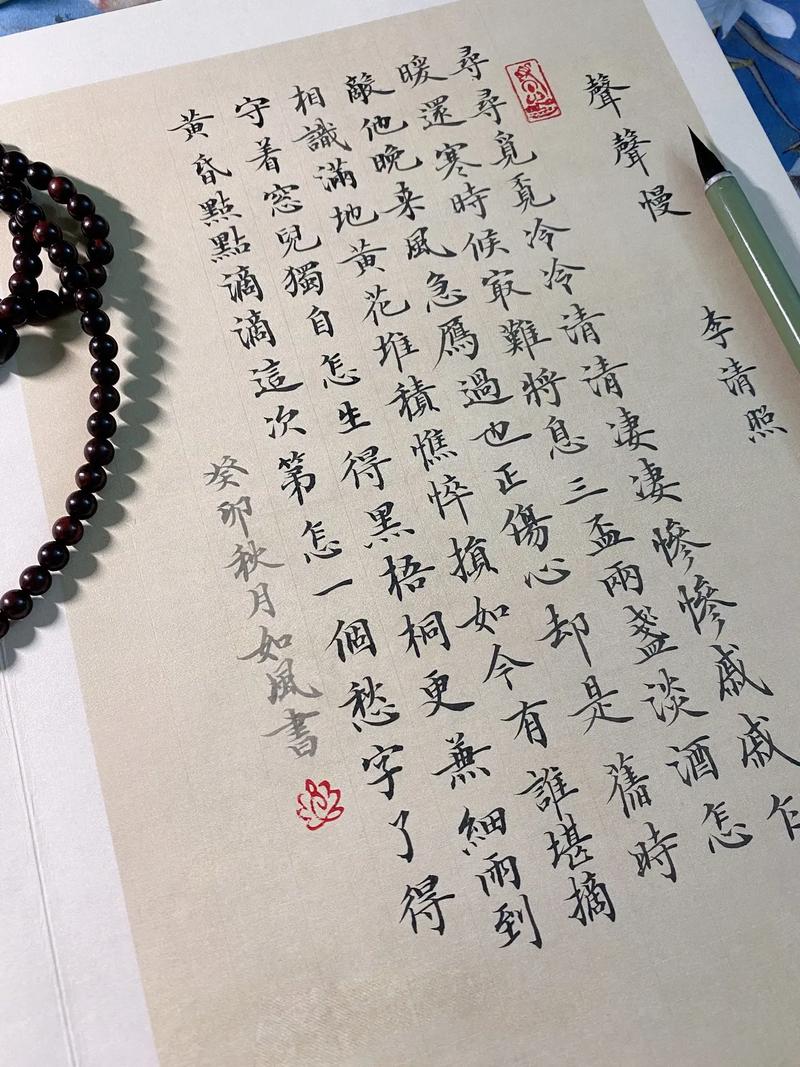 聲聲慢
李清照
尋尋覓覓冷冷清清淒淒慘慘戚戚乍
暖還寒時候㝡難將息三盃兩盞淡酒怎
敵他晚来風急鴈過也正傷心却是舊時
相識滿地黃花堆積憔悴損如今有誰堪摘
守着窓兒獨自怎生得黑梧桐更無細雨到
黃昏點點滴滴這次第怎一個愁字了得
癸卯秋月如風書